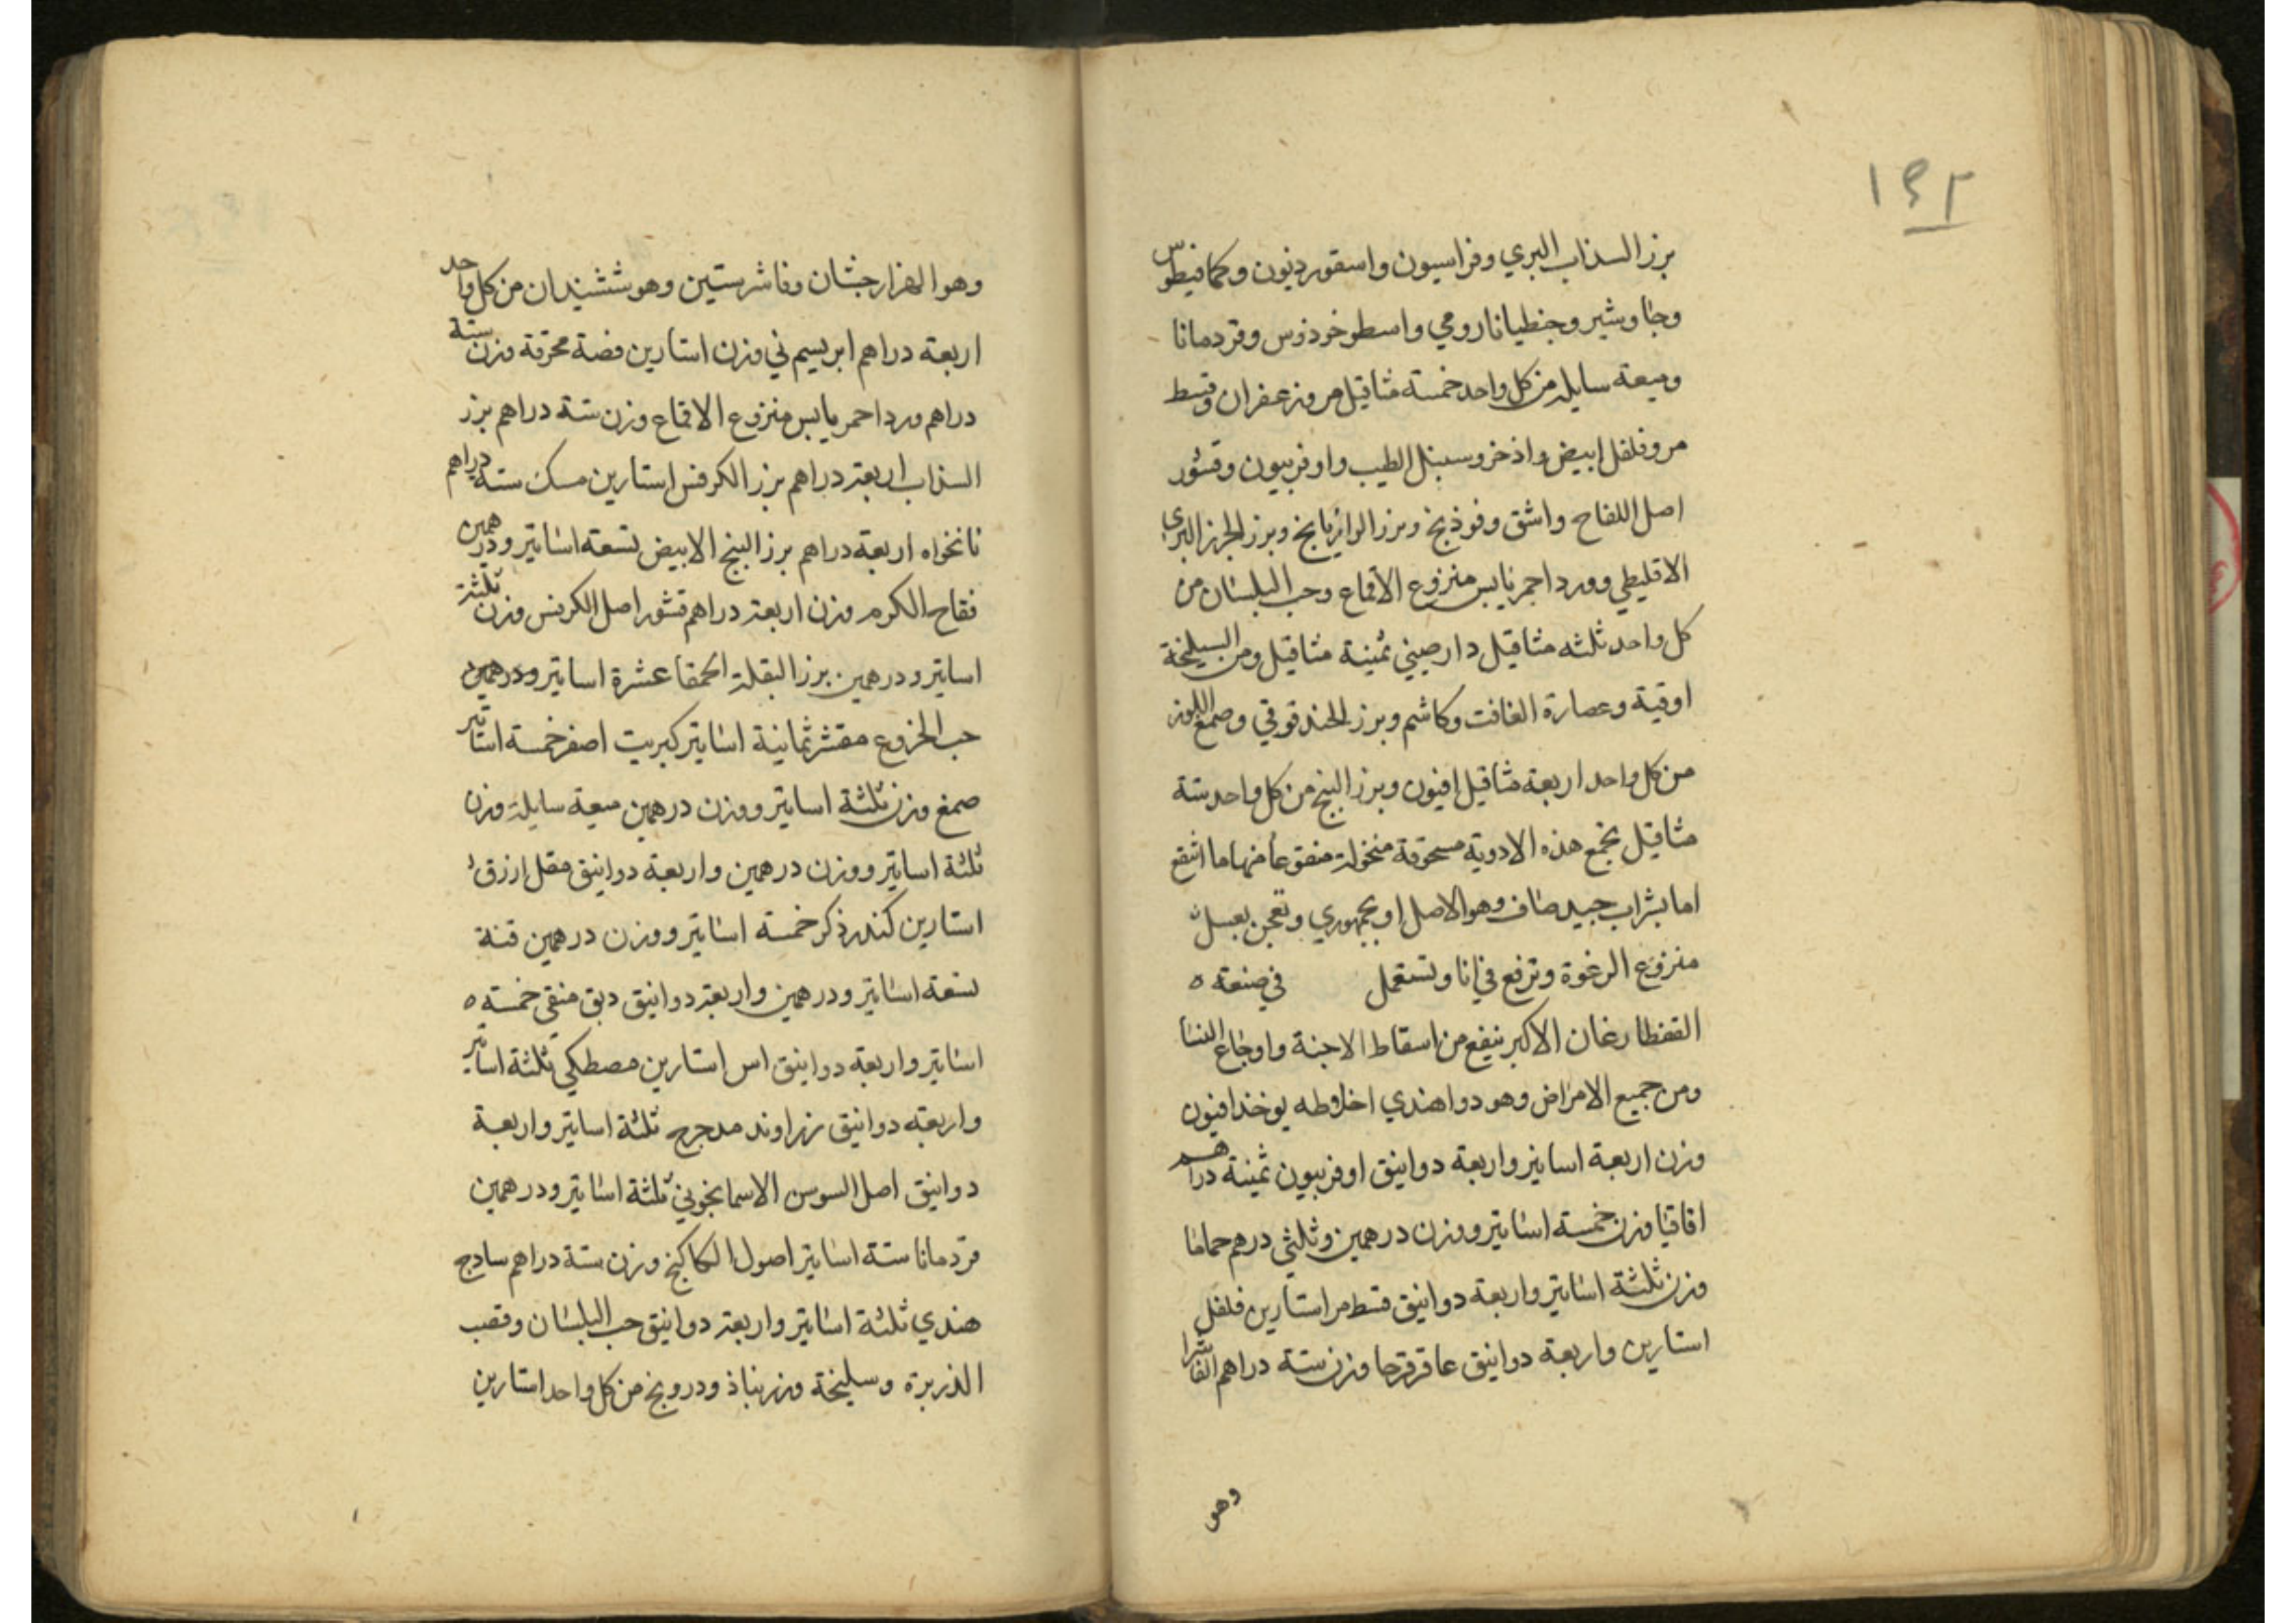 ١٤٢
بزر السذاب البري وفراسيون واسقورديون وكمافيطوس
وجاوشير وجنطيانا رومي واسطوخوذوس وقردمانا
وميعة سايلة من كل واحد خمسة مثاقيل مر وزعفران وقسط
مر وفلفل ابيض واذخر وسنبل الطيب واوفربيون وقشور
اصل اللفاح واشق وفوذنج وبزر الرازيانج وبزر الجزر البري
الاقليطي وورد احمر يابس منزوع الاقماع وحب البلسان من
كل واحد ثلثه مثاقيل دارصيني ثمينة مثاقيل ومن السليخة
اوقية وعصارة الغافت وكاشم وبزر الحندقوقي وصمغ اللوز
من كل واحد اربعة مثاقيل افيون وبزر البنج من كل واحد ستة
مثاقيل تجمع هذه الادوية مسحوقة منخولة منقوعا منها ما انقع
اما بشراب جيد صاف وهو الاصل او بجمهوري وتعجن بعسل
منزوع الرغوة وترفع في انا وتستعمل في صنعة ه
القفطارغان الاكبر ينفع من اسقاط الاجنة واوجاع النسا
ومن جميع الامراض وهو دوا هندي اخلاطه يوخذ افيون
وزن اربعة اساتير واربعة دوانيق اوفربيون ثمينة دراهم
اقاقيا وزن خمسة اساتير ووزن درهمين وثلثي درهم حماما
وزن ثلثة اساتير واربعة دوانيق قسط مر استارين فلفل
استارين واربعة دوانيق عاقرقرحا وزن ستة دراهم الفاشرا
وهو
وهو الهزارجشان وفاشرستين وهو ششبندان من كل واحد
اربعة دراهم ابريسم ني وزن استارين فضة محرقة وزن ستة
دراهم ورد احمر يابس منزوع الاقماع وزن ستة دراهم بزر
السذاب اربعة دراهم بزر الكرفس استارين مسك ستة دراهم
نانخواه اربعة دراهم بزر البنج الابيض تسعة اساتير ودرهمين
فقاح الكرم وزن اربعة دراهم قشور اصل الكرفس وزن ثلثة
اساتير ودرهمين بزر البقلة الحمقا عشرة اساتير ودرهمين
حب الخروع مقشر ثمانية اساتير كبريت اصفر خمسة اساتير
صمغ وزن ثلثة اساتير ووزن درهمين ميعة سايلة وزن
ثلثة اساتير ووزن درهمين واربعة دوانيق مقل ازرق
استارين كندر ذكر خمسة اساتير ووزن درهمين قنة
تسعة اساتير ودرهمين واربعة دوانيق دبق منقى خمسة ه
اساتير واربعة دوانيق اس استارين مصطكي ثلثة اساتير
واربعة دوانيق زراوند مدحرج ثلثة اساتير واربعة
دوانيق اصل السوسن الاسمانجوني ثلثة اساتير ودرهمين
قردمانا ستة اساتير اصول الكاكنج وزن ستة دراهم سادج
هندي ثلثة اساتير واربعة دوانيق حب البلسان وقصب
الذريرة وسليخة وزرنباذ ودرونج من كل واحد استارين